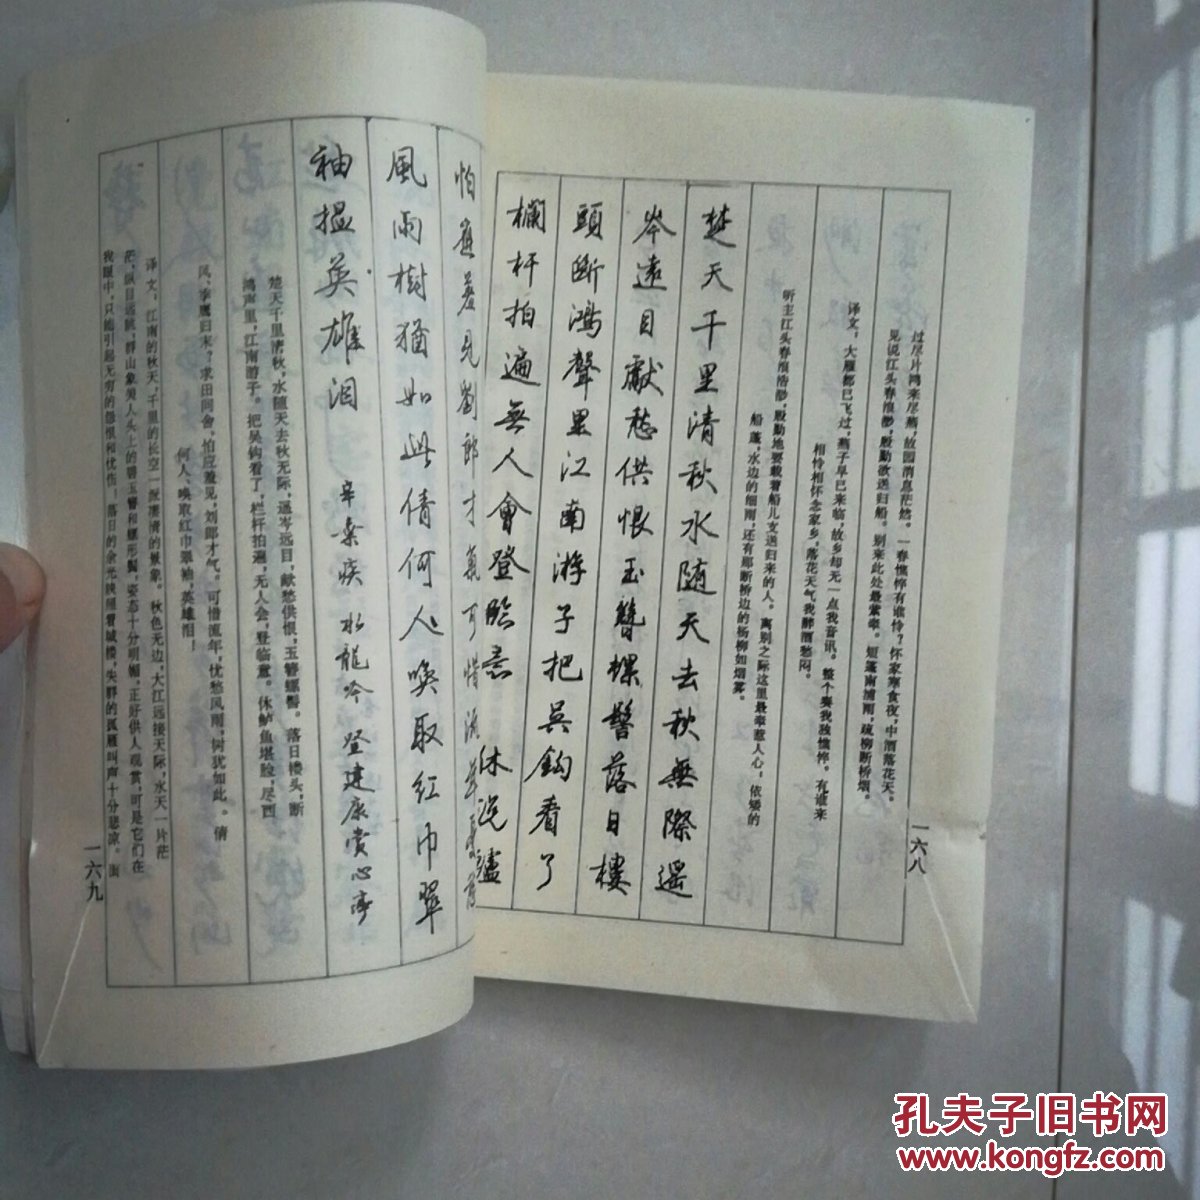 过尽片鸿来尽燕,故园消息茫然。一春憔悴有谁怜?怀家寒食夜,中酒落花天。
见说江头春浪渺,殷勤欲送归船。别来此处最萦牵。短篷南浦雨,疏柳断桥烟。
译文:大雁都已飞过,燕子早已来临,故乡却无一点我音讯。整个春我独憔悴。有谁来
相怜相怀念家乡,落花天气我醉酒愁闷。
听主江头春浪浩渺,殷勤地要载着船儿支送归来的人。离别之际这里最牵惹人心,依矮的
船蓬,水边的细雨,还有那断桥边的杨柳如烟雾。
楚天千里清秋水随天去秋無際遥
岑遠目獻愁供恨玉簪螺髻落日樓
頭斷鴻聲里江南游子把吳鈎看了
欄杆拍遍無人會登臨意 休说鱸
一六八
怕應羞見劉郎才氣可惜流年憂愁
風雨樹猶如此倩何人唤取红巾翠
袖揾英雄泪 辛棄疾 水龍吟 登建康赏心亭
楚天千里清秋,水随天去秋无际,遥岑远目,献愁供恨,玉簪螺髻。落日楼头,断
鸿声里,江南游子。把吴钩看了,栏杆拍遍,无人会,登临意。休鲈鱼堪脸,尽西
风、季鹰归未?求田问舍,怕应羞见,刘郎才气。可惜流年,忧愁风雨,树犹如此。倩
何人、唤取红巾翠袖,英雄泪!
译文:江南的秋天,千里的长空一派凄清的景象。秋色无边,大江远接天际,水天一片茫
茫,纵目远眺,群山象美人头上的碧玉簪和螺形髻,姿态十分明媚。正好供人观赏,可是它们在
我眼中,只能引起无穷的怨恨和忧伤!落日的余光映照着城楼,失群的孤雁叫声十分悲凉。面
一六九
孔夫子旧书网
www.kongfz.com